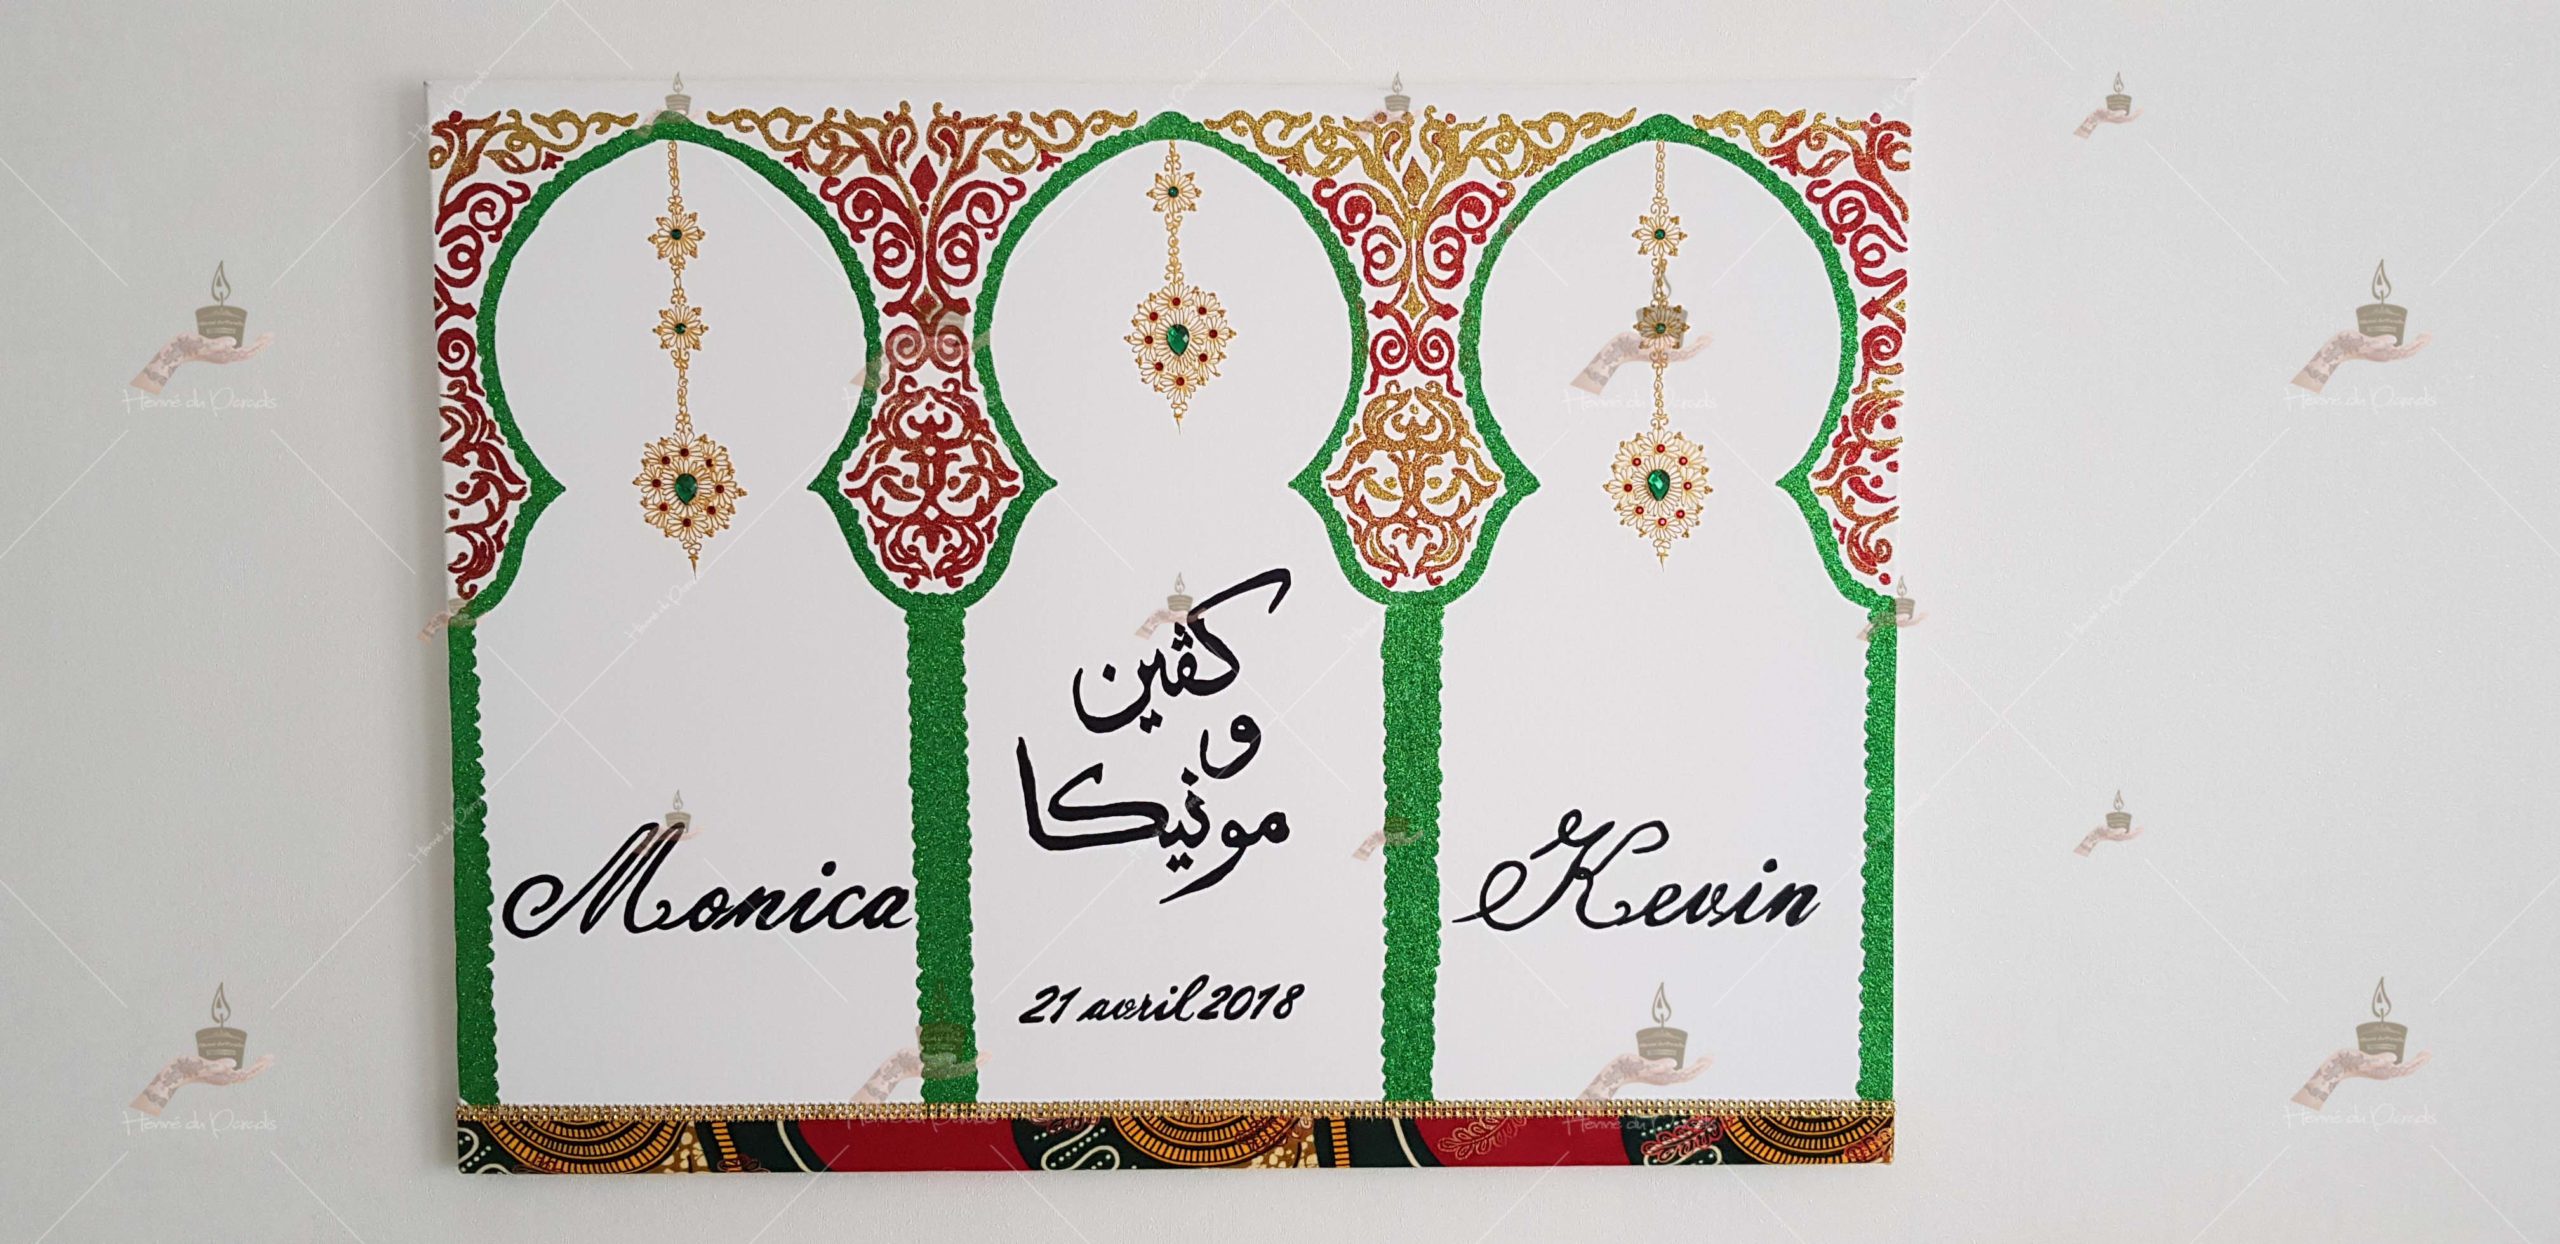 Monica
كڤين
و
مونيكا
21 avril 2018
Kevin
Henné du Paradis